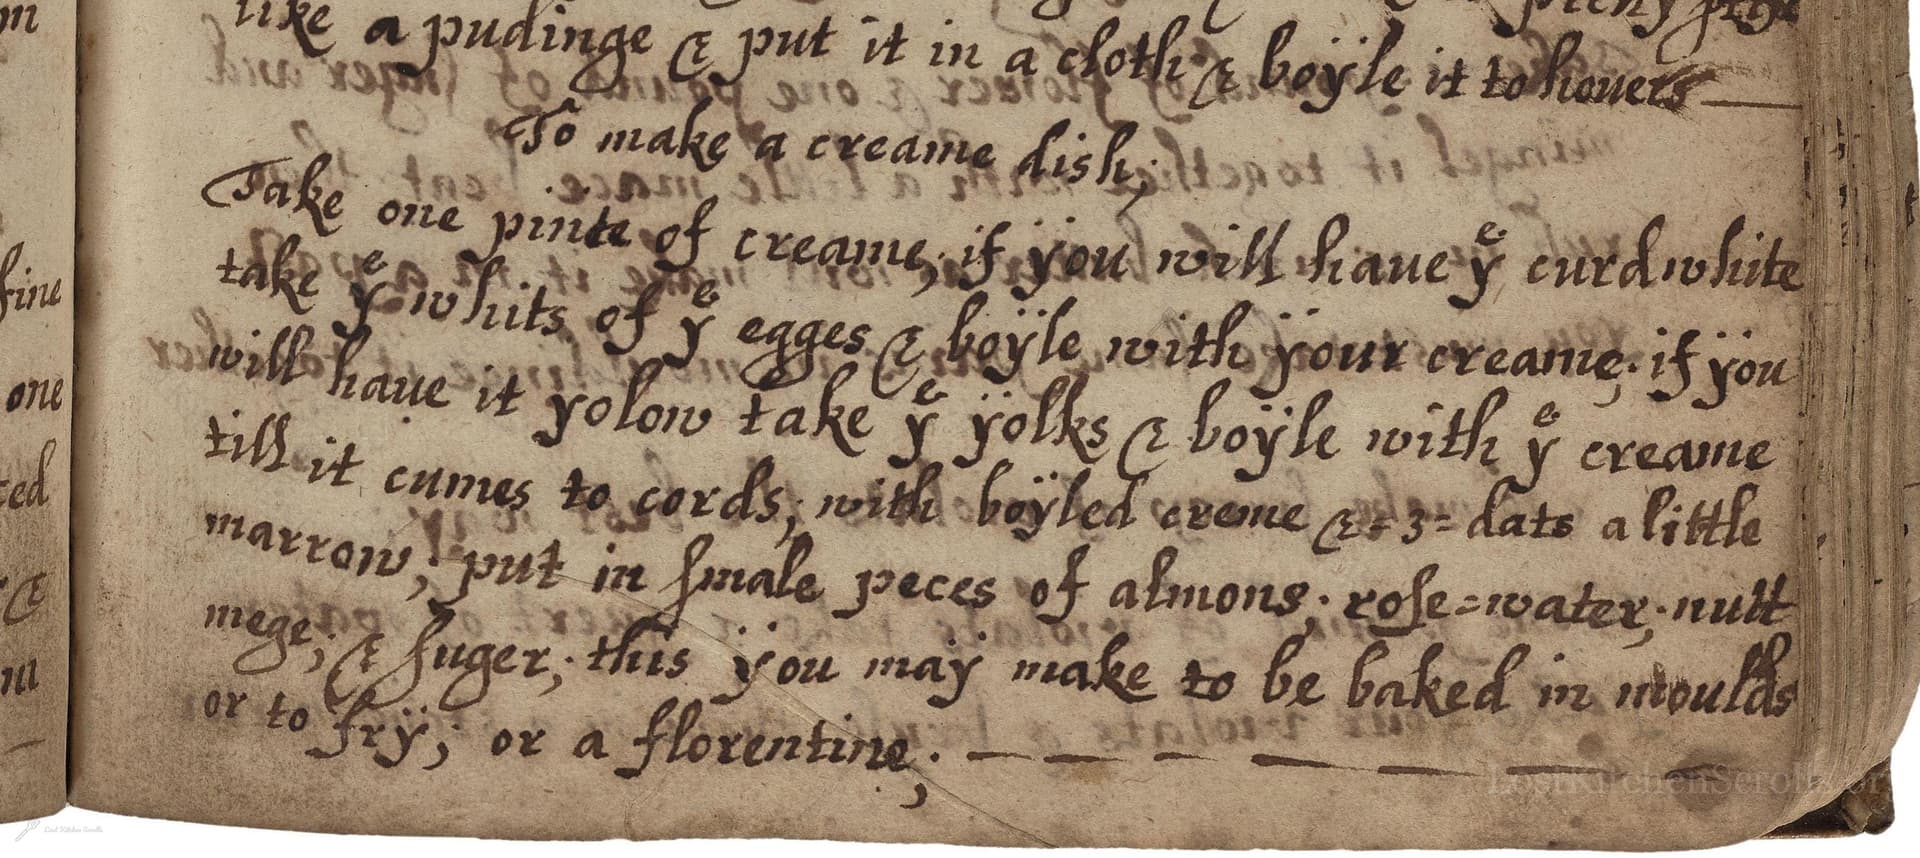 like a pudinge & put it in a cloth & boÿle it to houers
To make a creame dish;
Take one pinte of creame; if ÿou will haue yͤ curd white
take yͤ whits of yͤ egges & boÿle with ÿour creame; if ÿou
will haue it yolow take yͤ ÿolks & boÿle with yͤ creame
till it cumes to cords; with boÿled creme & = 3 = dats a little
marrow; put in ſmale peces of almons; roſe=water; nutt
mege; & ſuger; this ÿou maÿ make to be baked in moulds
or to frÿ; or a florentine;
fine
one
&
LostKitchenScrolls.or
Lost Kitchen Scrolls